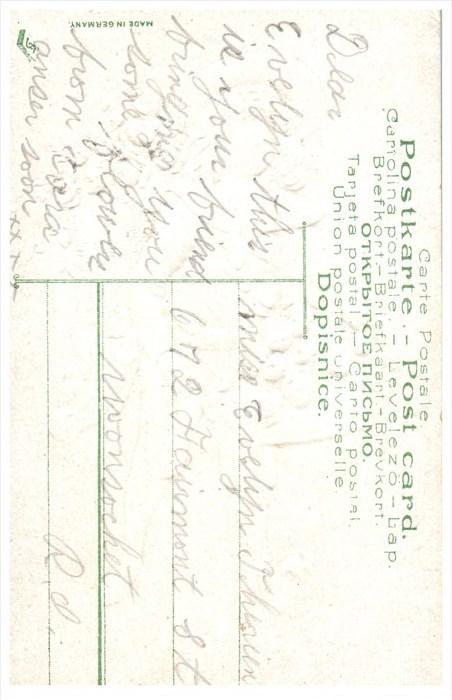 Carte Postale
Postkarte. - Post card.
Cartolina postale. - Levelező-Lap.
Brefkort-Briefkaart-Brevkort.
ОТКРЫТОЕ ПИСЬМО.
Tarjeta postal — Carto postal.
Union postale universelle
Dopisnice.
Dear
Evelyn this
is your friend
bringing you
some
flowers
from Cora
anser soon
xxxx
Miss Evelyn
672 Fairmont St
Woonsocket
R d.
MADE IN GERMANY.